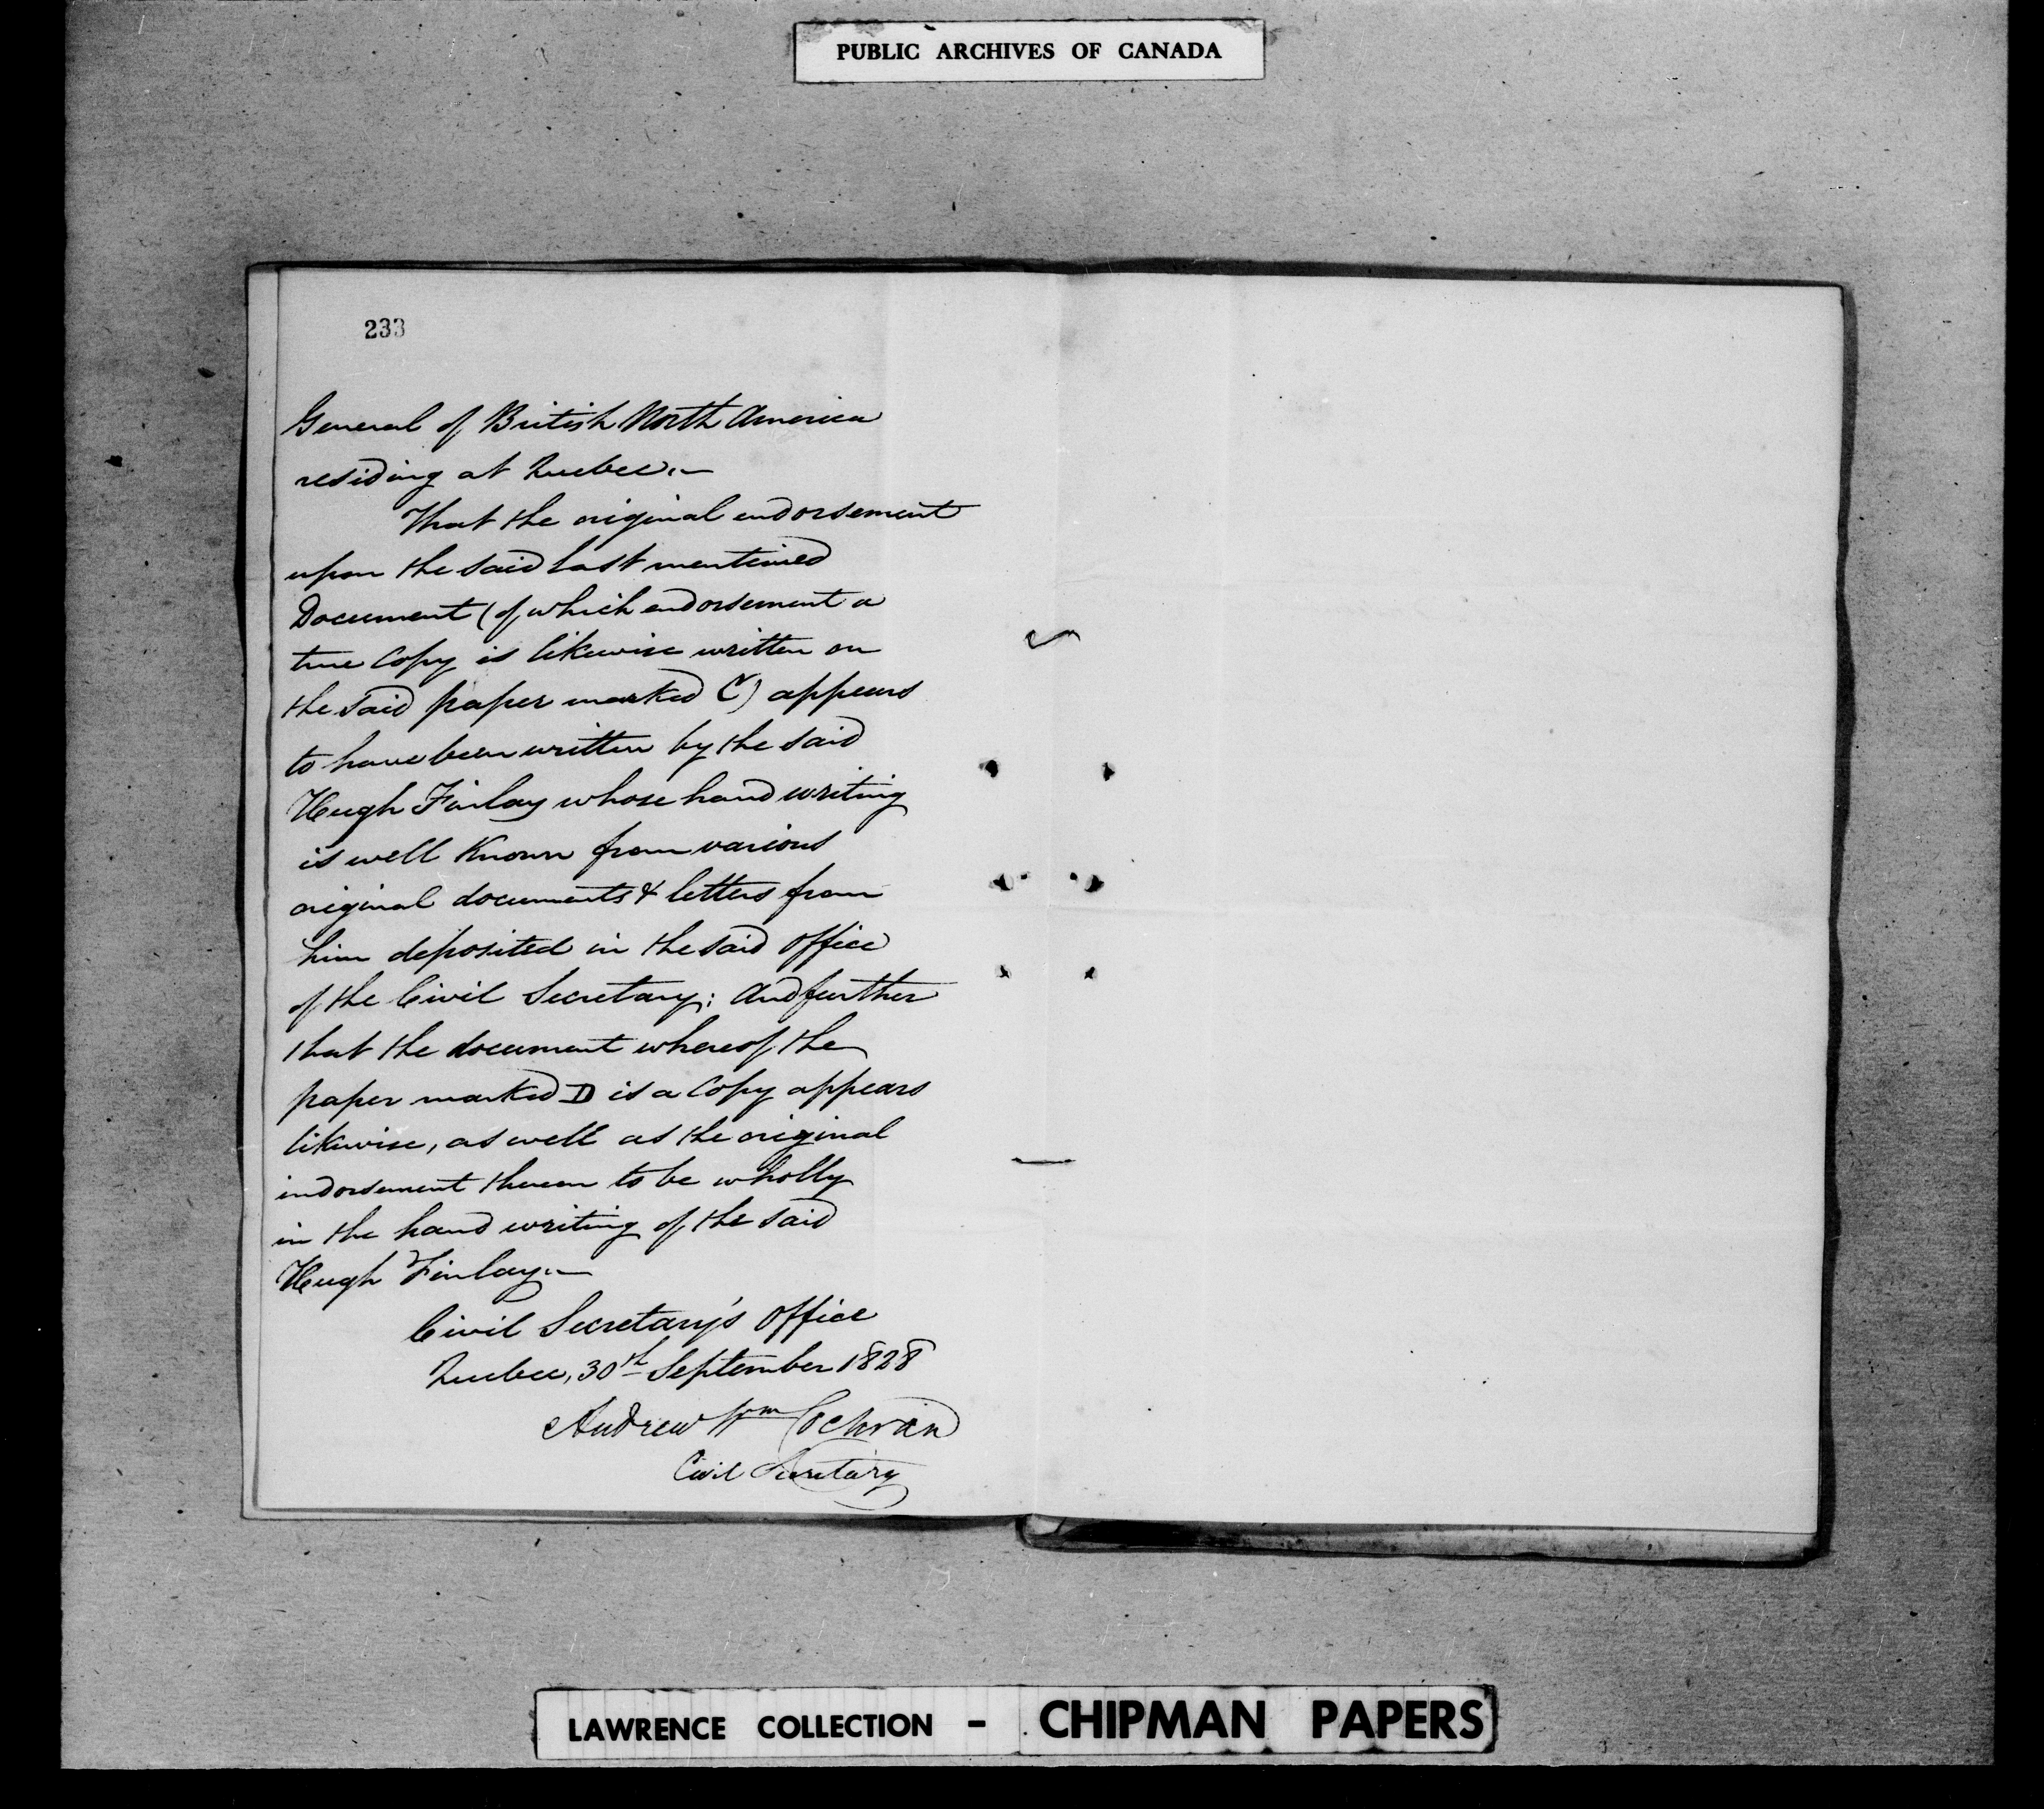 PUBLIC ARCHIVES OF CANADA
233
General of British North America
residing at Quebec.—
That the original endorsement
upon the said last mentioned
Document (of which endorsement a
true Copy is likewise written on
the said paper marked C) appears
to have been written by the said
Hugh Finlay whose hand writing
is well Known from various
original documents & letters from
him deposited in the said Office
of the Civil Secretary; And further
that the document whereof the
paper marked D is a Copy appears
likewise, as well as the original
indorsement thereon to be wholly
in the hand writing of the said
Hugh Finlay.—
Civil Secretary's Office
Quebec, 30th September 1828
Andrew Wm Cochran
Civil Secretary
LAWRENCE COLLECTION - CHIPMAN PAPERS